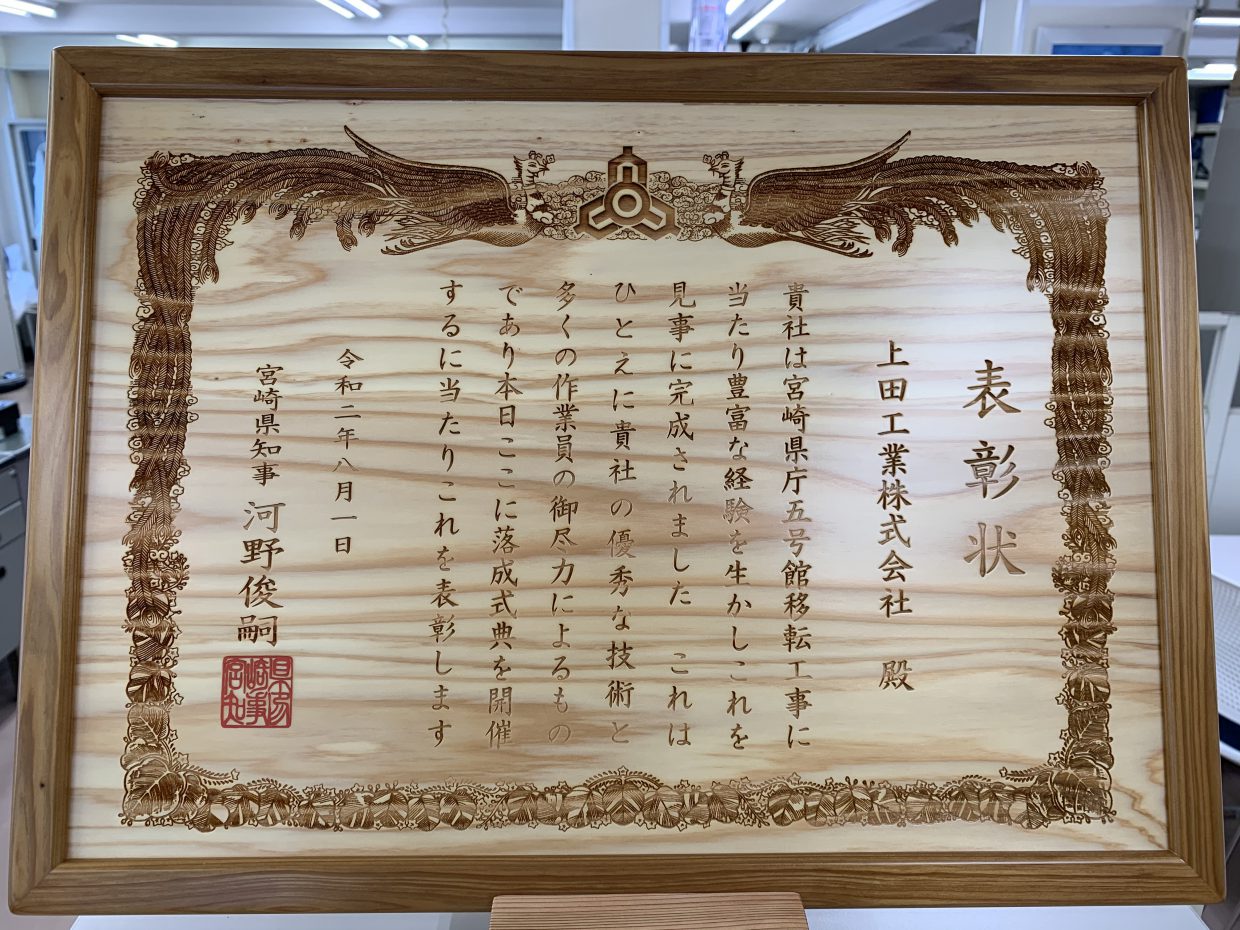 表彰状
上田工業株式会社 殿
貴社は宮崎県庁五号館移転工事に
当たり豊富な経験を生かしこれを
見事に完成されました これは
ひとえに貴社の優秀な技術と
多くの作業員の御尽力によるもの
であり本日ここに落成式典を開催
するに当たりこれを表彰します
令和二年八月一日
宮崎県知事 河野俊嗣